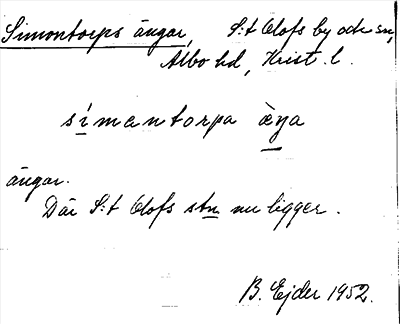 Simontorps ängar, S:t Olofs by och sn,
Albo hd, Krist. l.
símantorpa ầŋa
ängar.
Där S:t Olofs stn nu ligger.
B. Ejder 1952.